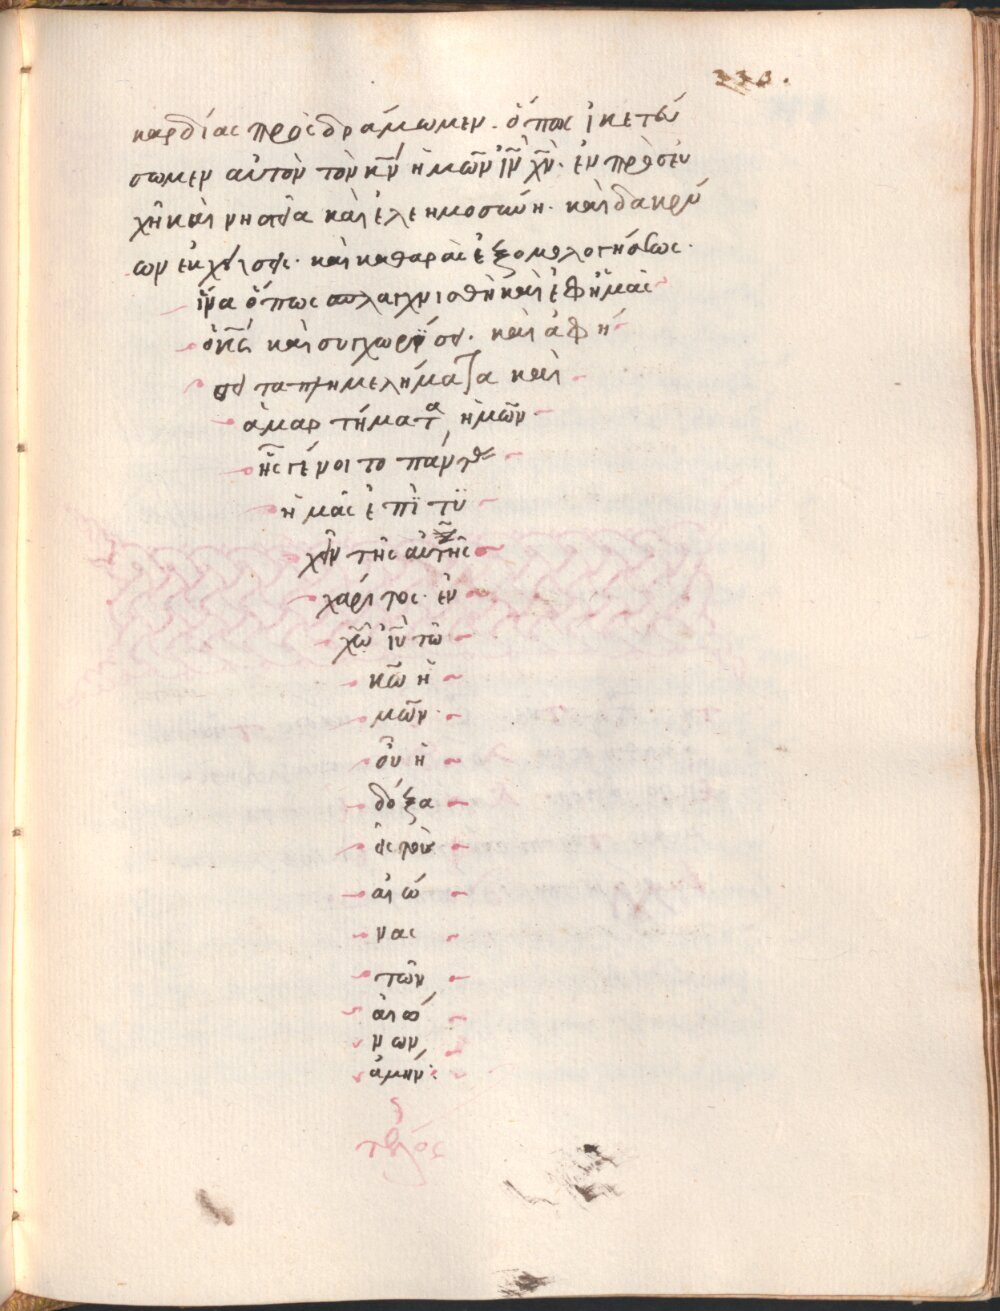 καρδίας προσδράμωμεν. ὅπως ἱκετεύ
σωμεν αὐτὸν τὸν κ̅ν̅ ἡμῶν ἰ̅ν̅ χ̅ν̅. ἐν προσευ
χῆ καὶ νηστεία καὶ ἐλεημοσύνη. καὶ δακρύ
ων ἐκχύσεως. καὶ καθαρᾶς ἐξομολογήσεως.
ἵνα ὅπως σπλαγχνισθῆ καὶ ἐφ ἡμᾶς
ὁ κ̅ς̅ καὶ συγχωρήσει. καὶ ἀφή
σει τα πλημελήματα καὶ
ἁμαρτήματα ἡμῶν
ἧς γένοιτο πάντας
ἡμᾶς ἐπιτυ
χεῖν τῆς αὐτῆς
χάριτος. ἐν
χ̅ω̅ ἰ̅υ̅ τῶ
κ̅ω̅ ἡ
μῶν.
οὗ ἡ
δόξα
εἰς τοὺς
αἰώ
νας
τῶν
αἰώ
νων
ἀμήν:
τέλος